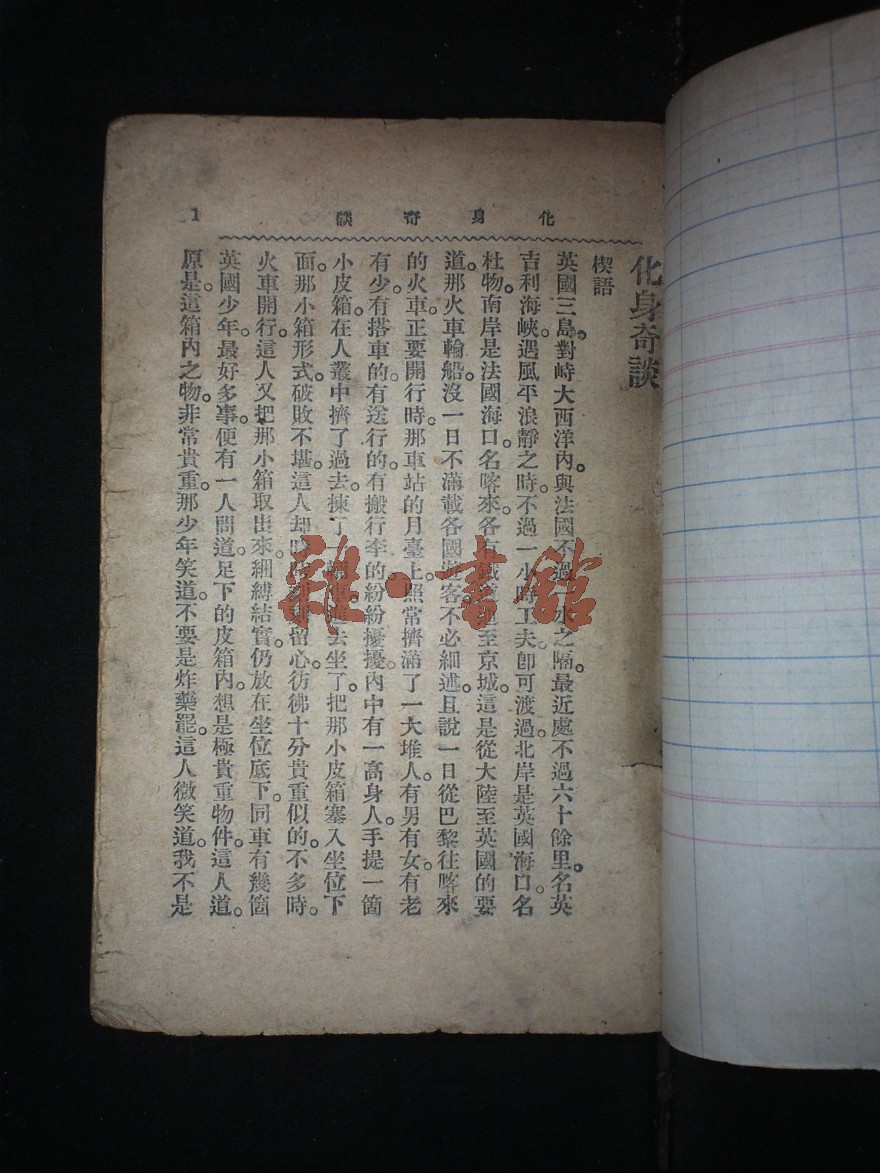 化身奇談
1
化身奇談
楔語
英國三島。對峙大西洋內。與法國不過一水之隔。最近處不過六十餘里。名英
吉利海峽。遇風平浪靜之時。不過一小時工夫。卽可渡過。北岸是英國海口。名
杜物。南岸是法國海口。名喀來。各有鐵道通至京城。這是從大陸至英國的要
道。那火車輪船。沒一日不滿載各國遊客。不必細述。且說一日從巴黎往喀來
的火車。正要開行時。那車站的月臺上。照常擠滿了一大堆人。有男有女。有老
有少。有搭車的。有送行的。有搬行李的。紛紛擾擾。內中有一高身人。手提一箇
小皮箱。在人叢中擠了過去。揀了一輛車進去坐了。把那小皮箱塞入坐位下
面。那小箱形式破敗不堪。這人却時時刻刻留心。彷彿十分貴重似的。不多時。
火車開行。這人又把那小箱取出來。綑縛結實。仍放在坐位底下。同車有幾箇
英國少年。最好多事。便有一人問道。足下的皮箱內。想是極貴重物件。這人道。
原是。這箱內之物。非常貴重。那少年笑道。不要是炸藥罷。這人微笑道。我不是
雜·書館